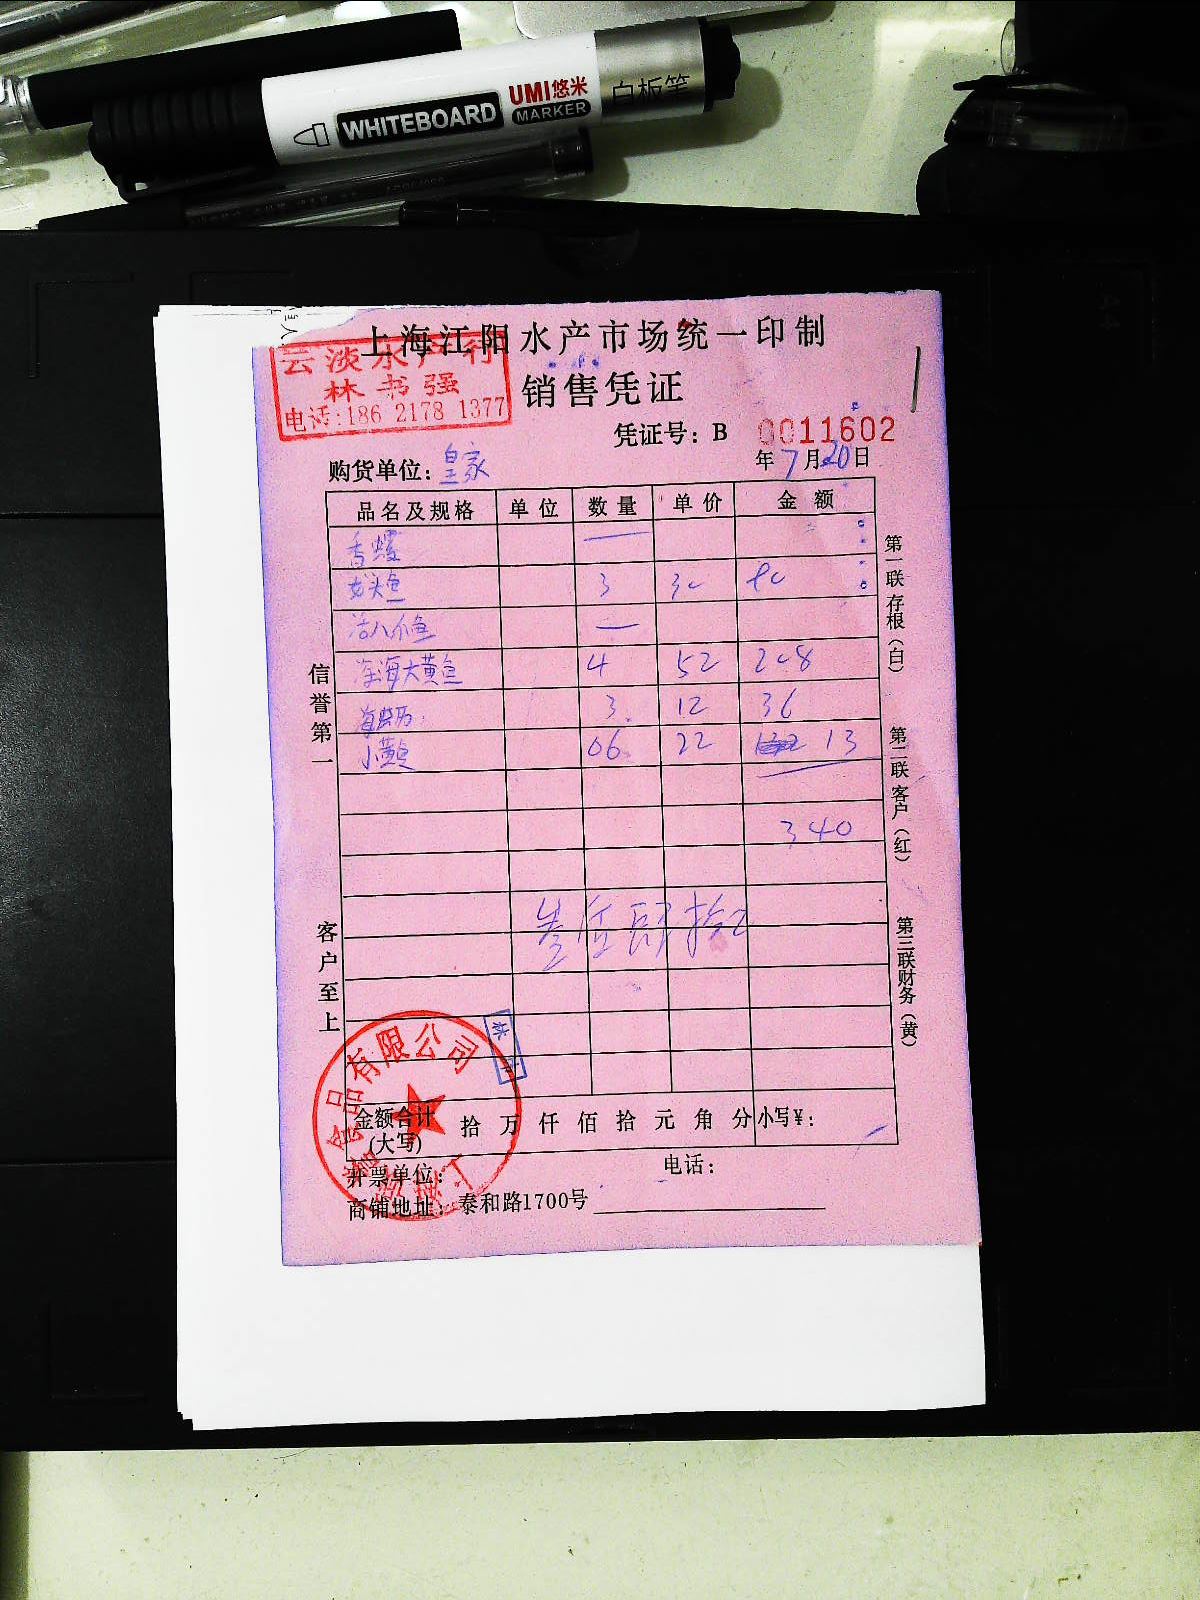 UMI悠米
WHITEBOARD MARKER 白板笔
上海江阳水产市场统一印制
云淡水产行
林书强
电话:186 2178 1377
销售凭证
凭证号: B 0011602
购货单位: 皇家
年 7 月 20 日
品名及规格 单位 数量 单价 金额
香螺 —
龙头鱼 3 30 90
活八爪鱼 —
东海大黄鱼 4 52 208
海蛎 3 12 36
小黄鱼 06 22 13
340
叁佰肆拾
信誉第一
客户至上
第一联存根(白)
第二联客户(红)
第三联财务(黄)
食品有限公司
金额合计(大写) 拾 万 仟 佰 拾 元 角 分 小写¥:
开票单位: 电话:
商铺地址: 泰和路1700号